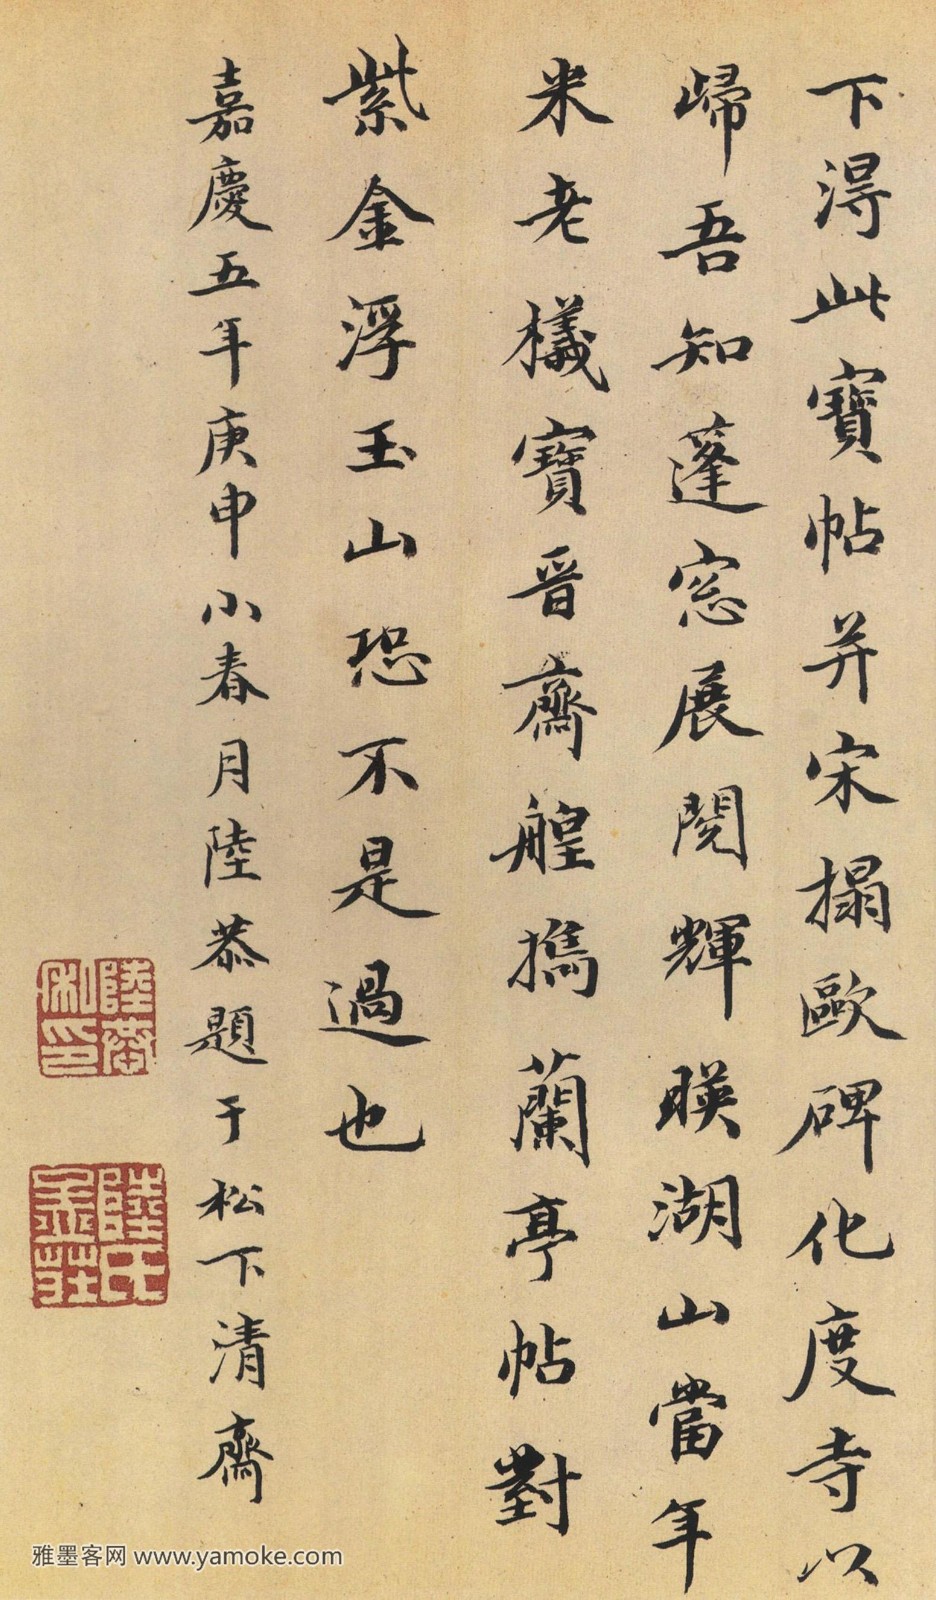 下淂此寶帖并宋搨歐碑化度寺以
歸吾知蓬窓展閱輝暎湖山當年
米老檥寶晋齋艎㩦蘭亭帖對
紫金浮玉山恐不是過也
嘉慶五年庚申小春月陸恭題于松下清齋
陸恭
私印
陸氏
孟莊
雅墨客网 www.yamoke.com